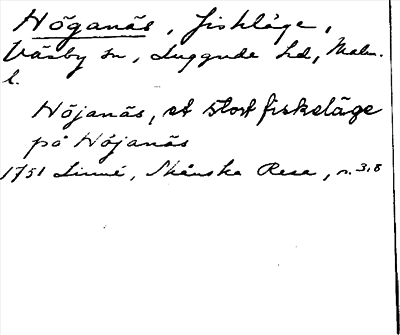 Höganäs, fiskläge,
Väsby sn, Luggude hd, Malm.
l.
Höjanäs, et stort fiskeläge
på Höjanäs
1751 Linné, Skånska Resa, s. 318